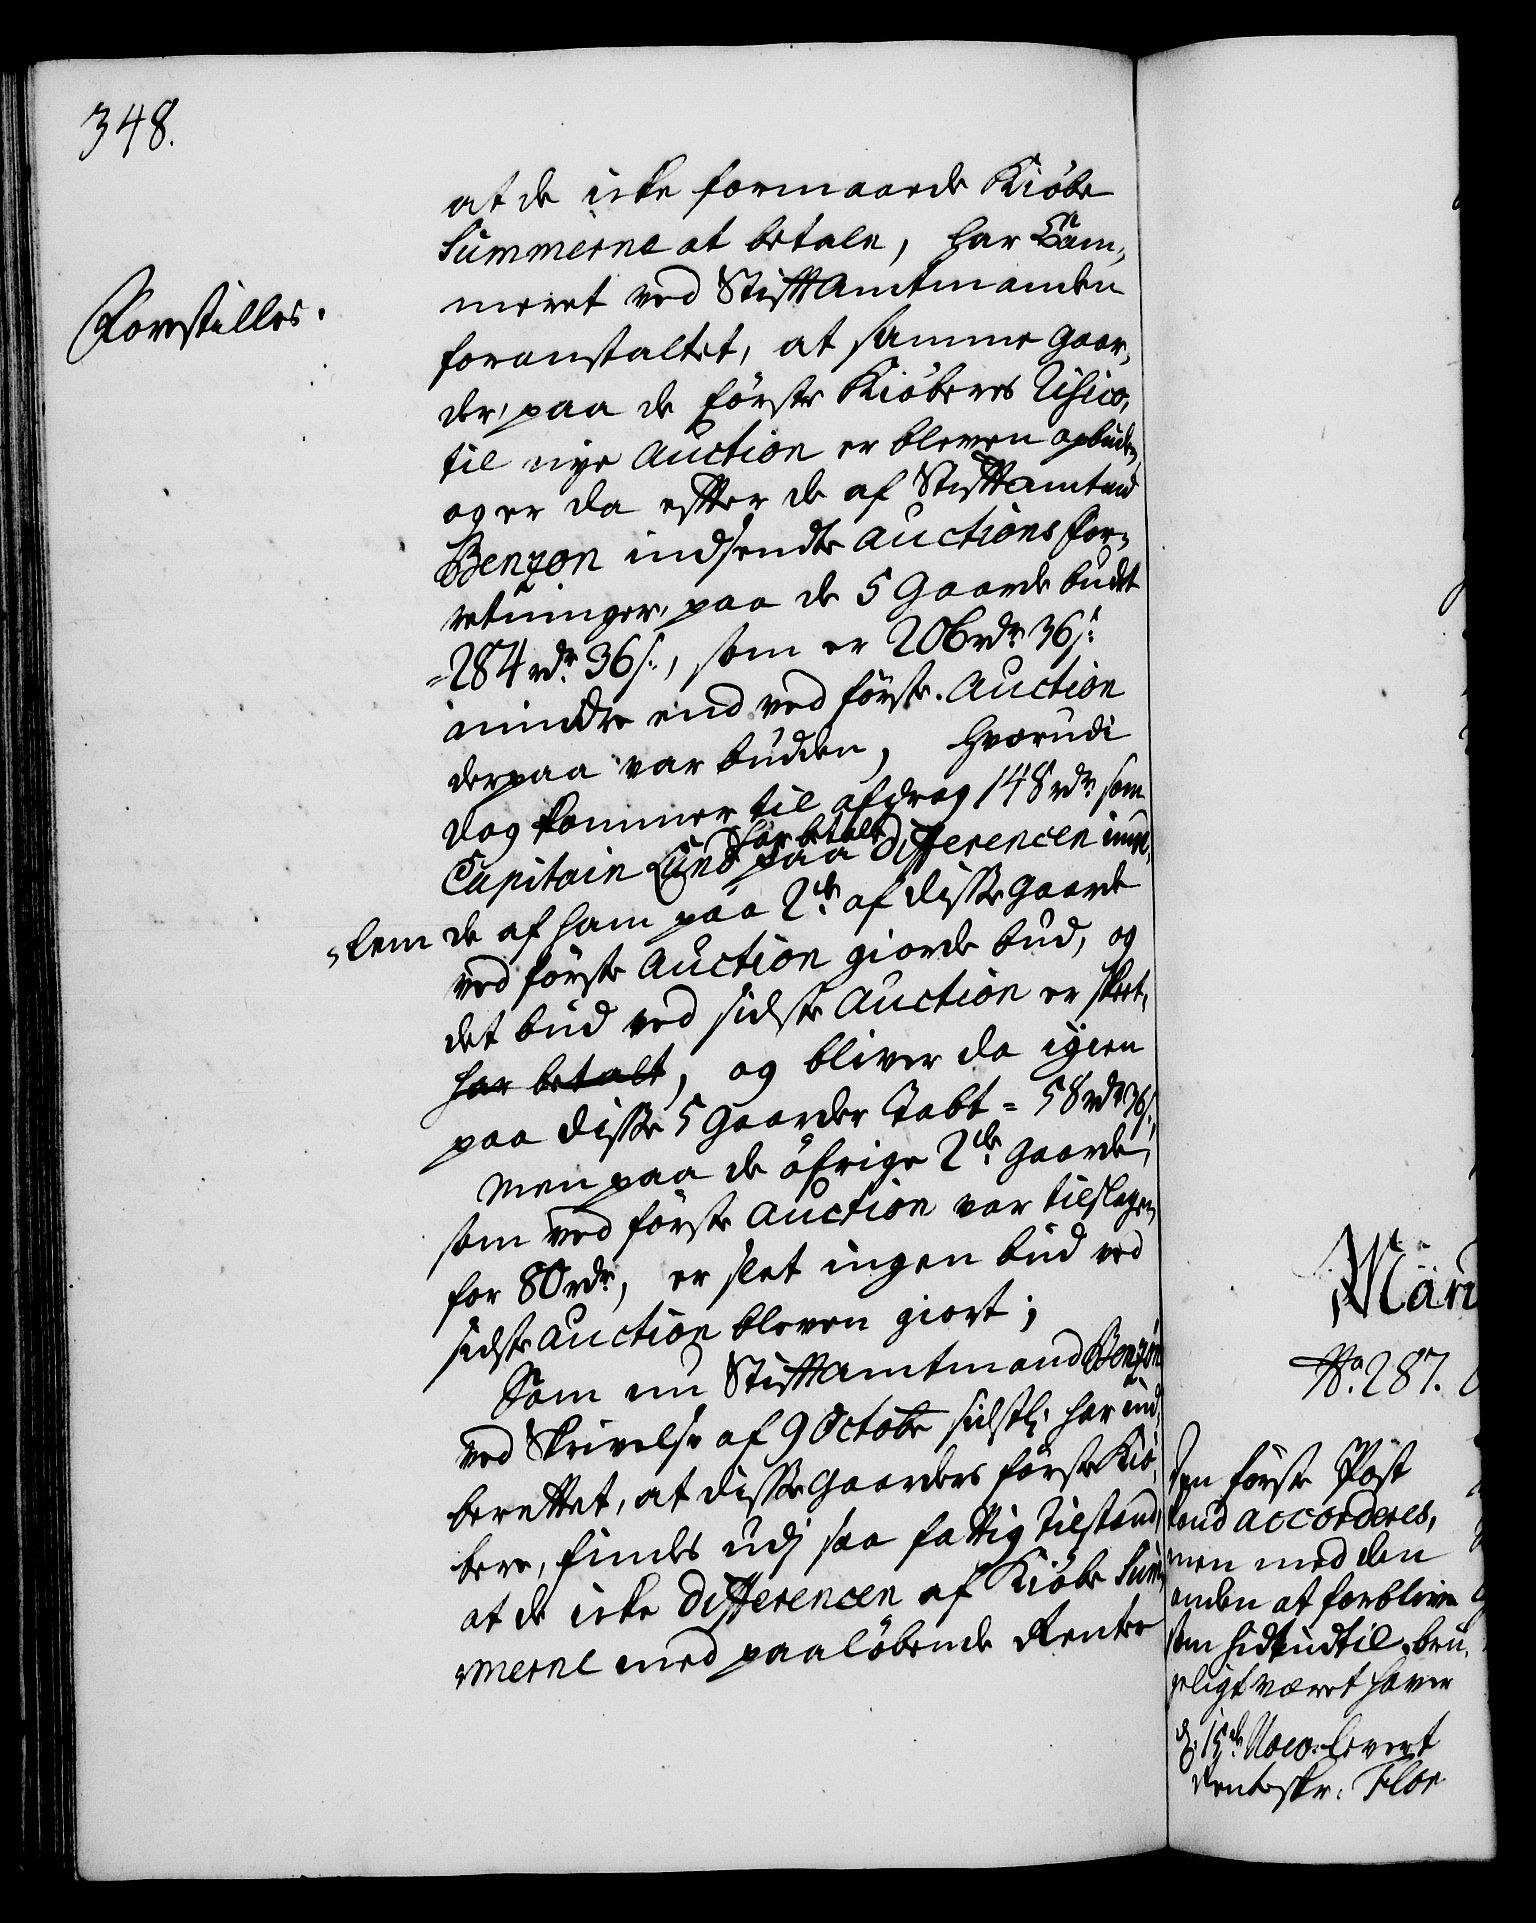 348.
Forestilles.
at de icke formaaede Kiöbe
Summerne at betale, har Cam„
meret ved Stiftamtmanden
foranstaltet, at samme Gaar„
der, paa de förste Kiöberes Risico,
til nye Auction er bleven opbuden,
og er da efter de af Stiftamtmd
Benzon indsendte Auctions for„
retninger, paa de 5 Gaarde budet
284 rdr. 36 s., som er 206 rdr. 36 s.
mindre end ved förste Auction
derpaa var budden, hvorudi
dog kommer til afdrag 148 rdr. som
har betalt
Capitain Lund paa differencen imel„
„lem de af ham paa 2de af disse Gaarde
ved förste Auction giorde bud, og
det bud ved sidste Auction er skeet,
har betalt, og bliver da igien
paa disse 5 Gaarder Tabt = 58 rdr 36 s.,
Men paa de öfrige 2de Gaarde,
som ved förste Auction var tilslagen
for 80 rdr., er slet ingen bud ved
sidste Auction bleven giort;
Som nu Stiftamtmand Benzon
ved Skrivelse af 9 Octobr sidstl. har ind„
berettet, at disse Gaarders förste Kiö„
bere, findes udj saa fattig Tilstand,
at de icke differencen af Kiöbe Sum„
merne med paalöbende Renter
No. 287.
Den förste Post
kand accorderes,
men med den
anden at forblive
som hidindtil bru„
geligt været haver
d. 15de Nov. levert
Renteskr. Flor